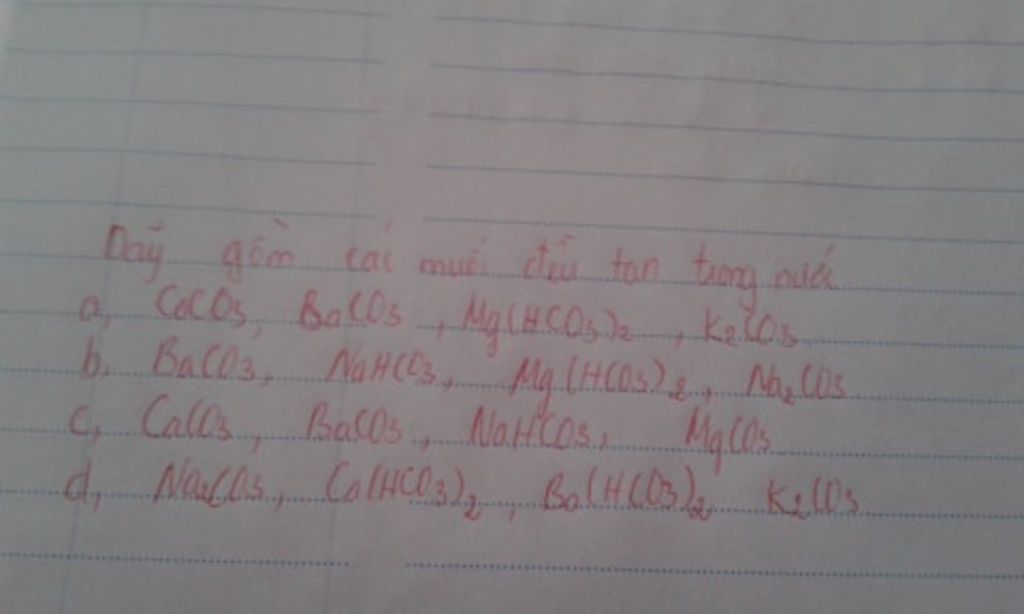 Dãy gồm các muối đều tan trong nước
a, CaCO3, BaCO3, Mg(HCO3)2, K2CO3
b, BaCO3, NaHCO3, Mg(HCO3)2, Na2CO3
c, CaCO3, BaCO3, NaHCO3, MgCO3
d, Na2CO3, Ca(HCO3)2, Ba(HCO3)2 K2CO3